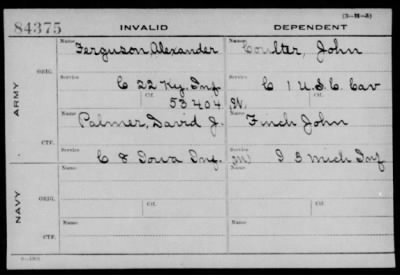 (3-M-A)
84375 INVALID DEPENDENT
Name: Name:
Ferguson, Alexander Coulter, John
ORIG. Service Service
C 22 Ky. Inf. C 1 U.S.C. Cav
Ctf. Ctf.
53404 W.
ARMY
Name: Name:
Palmer, David J. Finch John
CTF. Service Service
C 8 Iowa Inf. M) I 3 Mich Inf
Name: Name:
ORIG. Ctf. Ctf.
NAVY
Name: Name:
CTF.